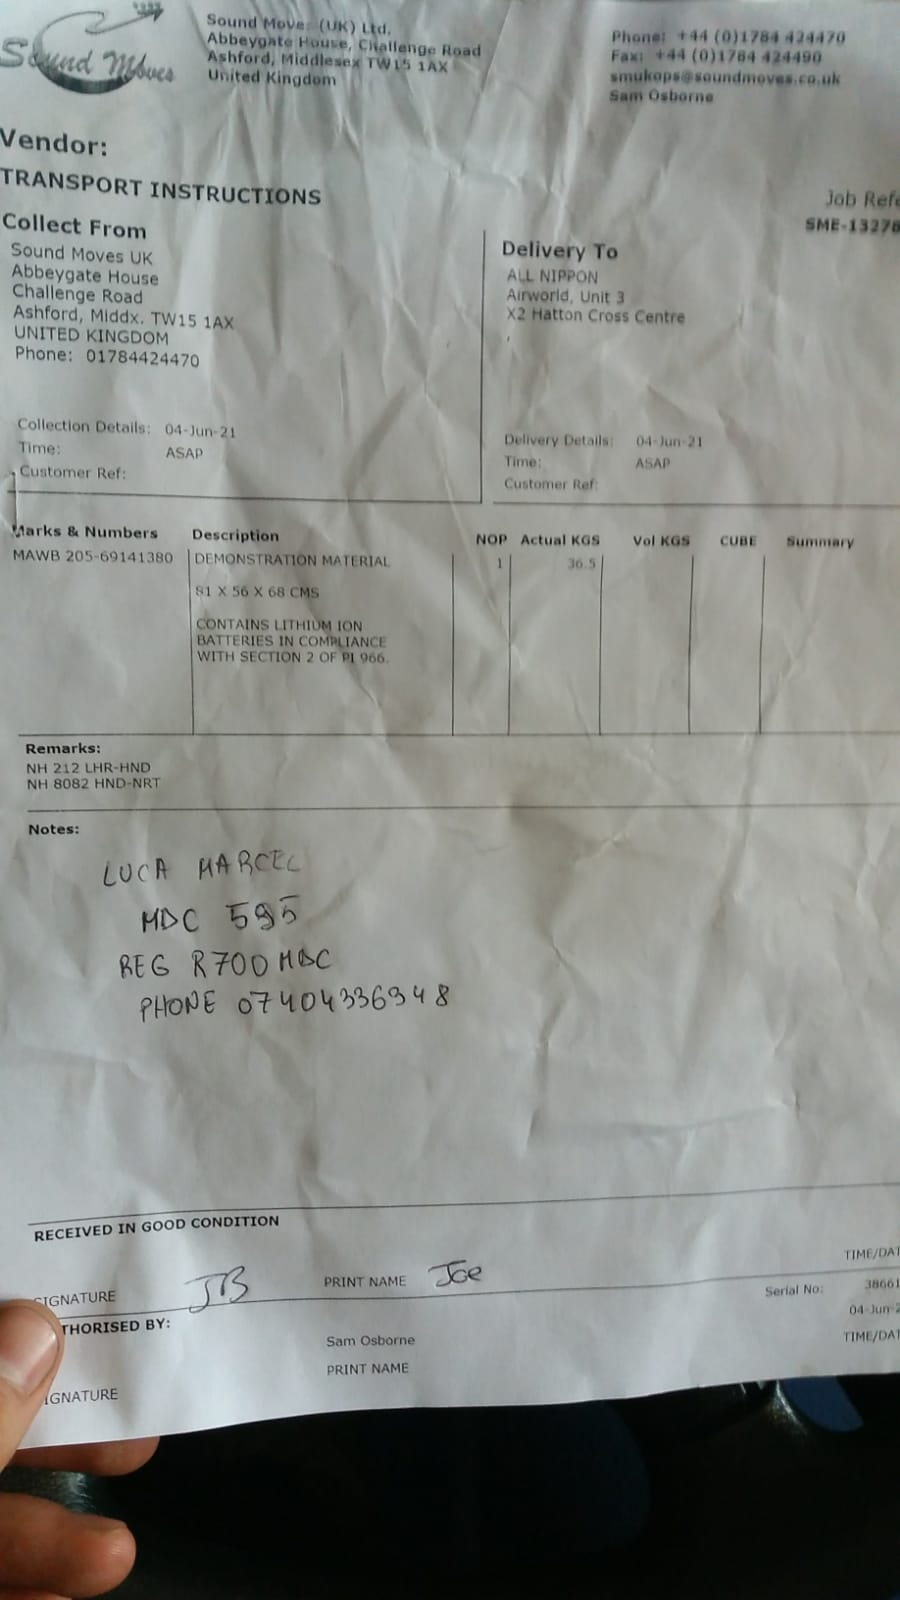 Sound Moves
Sound Move: (UK) Ltd.
Abbeygate House, Challenge Road
Ashford, Middlesex TW15 1AX
United Kingdom
Phone: +44 (0)1784 424470
Fax: +44 (0)1784 424490
smukops@soundmoves.co.uk
Sam Osborne
Vendor:
TRANSPORT INSTRUCTIONS
Job Refe
SME-13278
Collect From
Sound Moves UK
Abbeygate House
Challenge Road
Ashford, Middx. TW15 1AX
UNITED KINGDOM
Phone: 01784424470
Delivery To
ALL NIPPON
Airworld, Unit 3
X2 Hatton Cross Centre
Collection Details: 04-Jun-21
Time: ASAP
Customer Ref:
Delivery Details: 04-Jun-21
Time: ASAP
Customer Ref:
Marks & Numbers Description NOP Actual KGS Vol KGS CUBE Summary
MAWB 205-69141380 DEMONSTRATION MATERIAL 1 36.5
81 X 56 X 68 CMS
CONTAINS LITHIUM ION
BATTERIES IN COMPLIANCE
WITH SECTION 2 OF PI 966.
Remarks:
NH 212 LHR-HND
NH 8082 HND-NRT
Notes:
LUCA MARCEL
MDC 595
REG R700 MDC
PHONE 07404336948
RECEIVED IN GOOD CONDITION
TIME/DAT
SIGNATURE JB PRINT NAME Joe
Serial No: 38661
THORISED BY: Sam Osborne 04-Jun-2
PRINT NAME TIME/DAT
IGNATURE